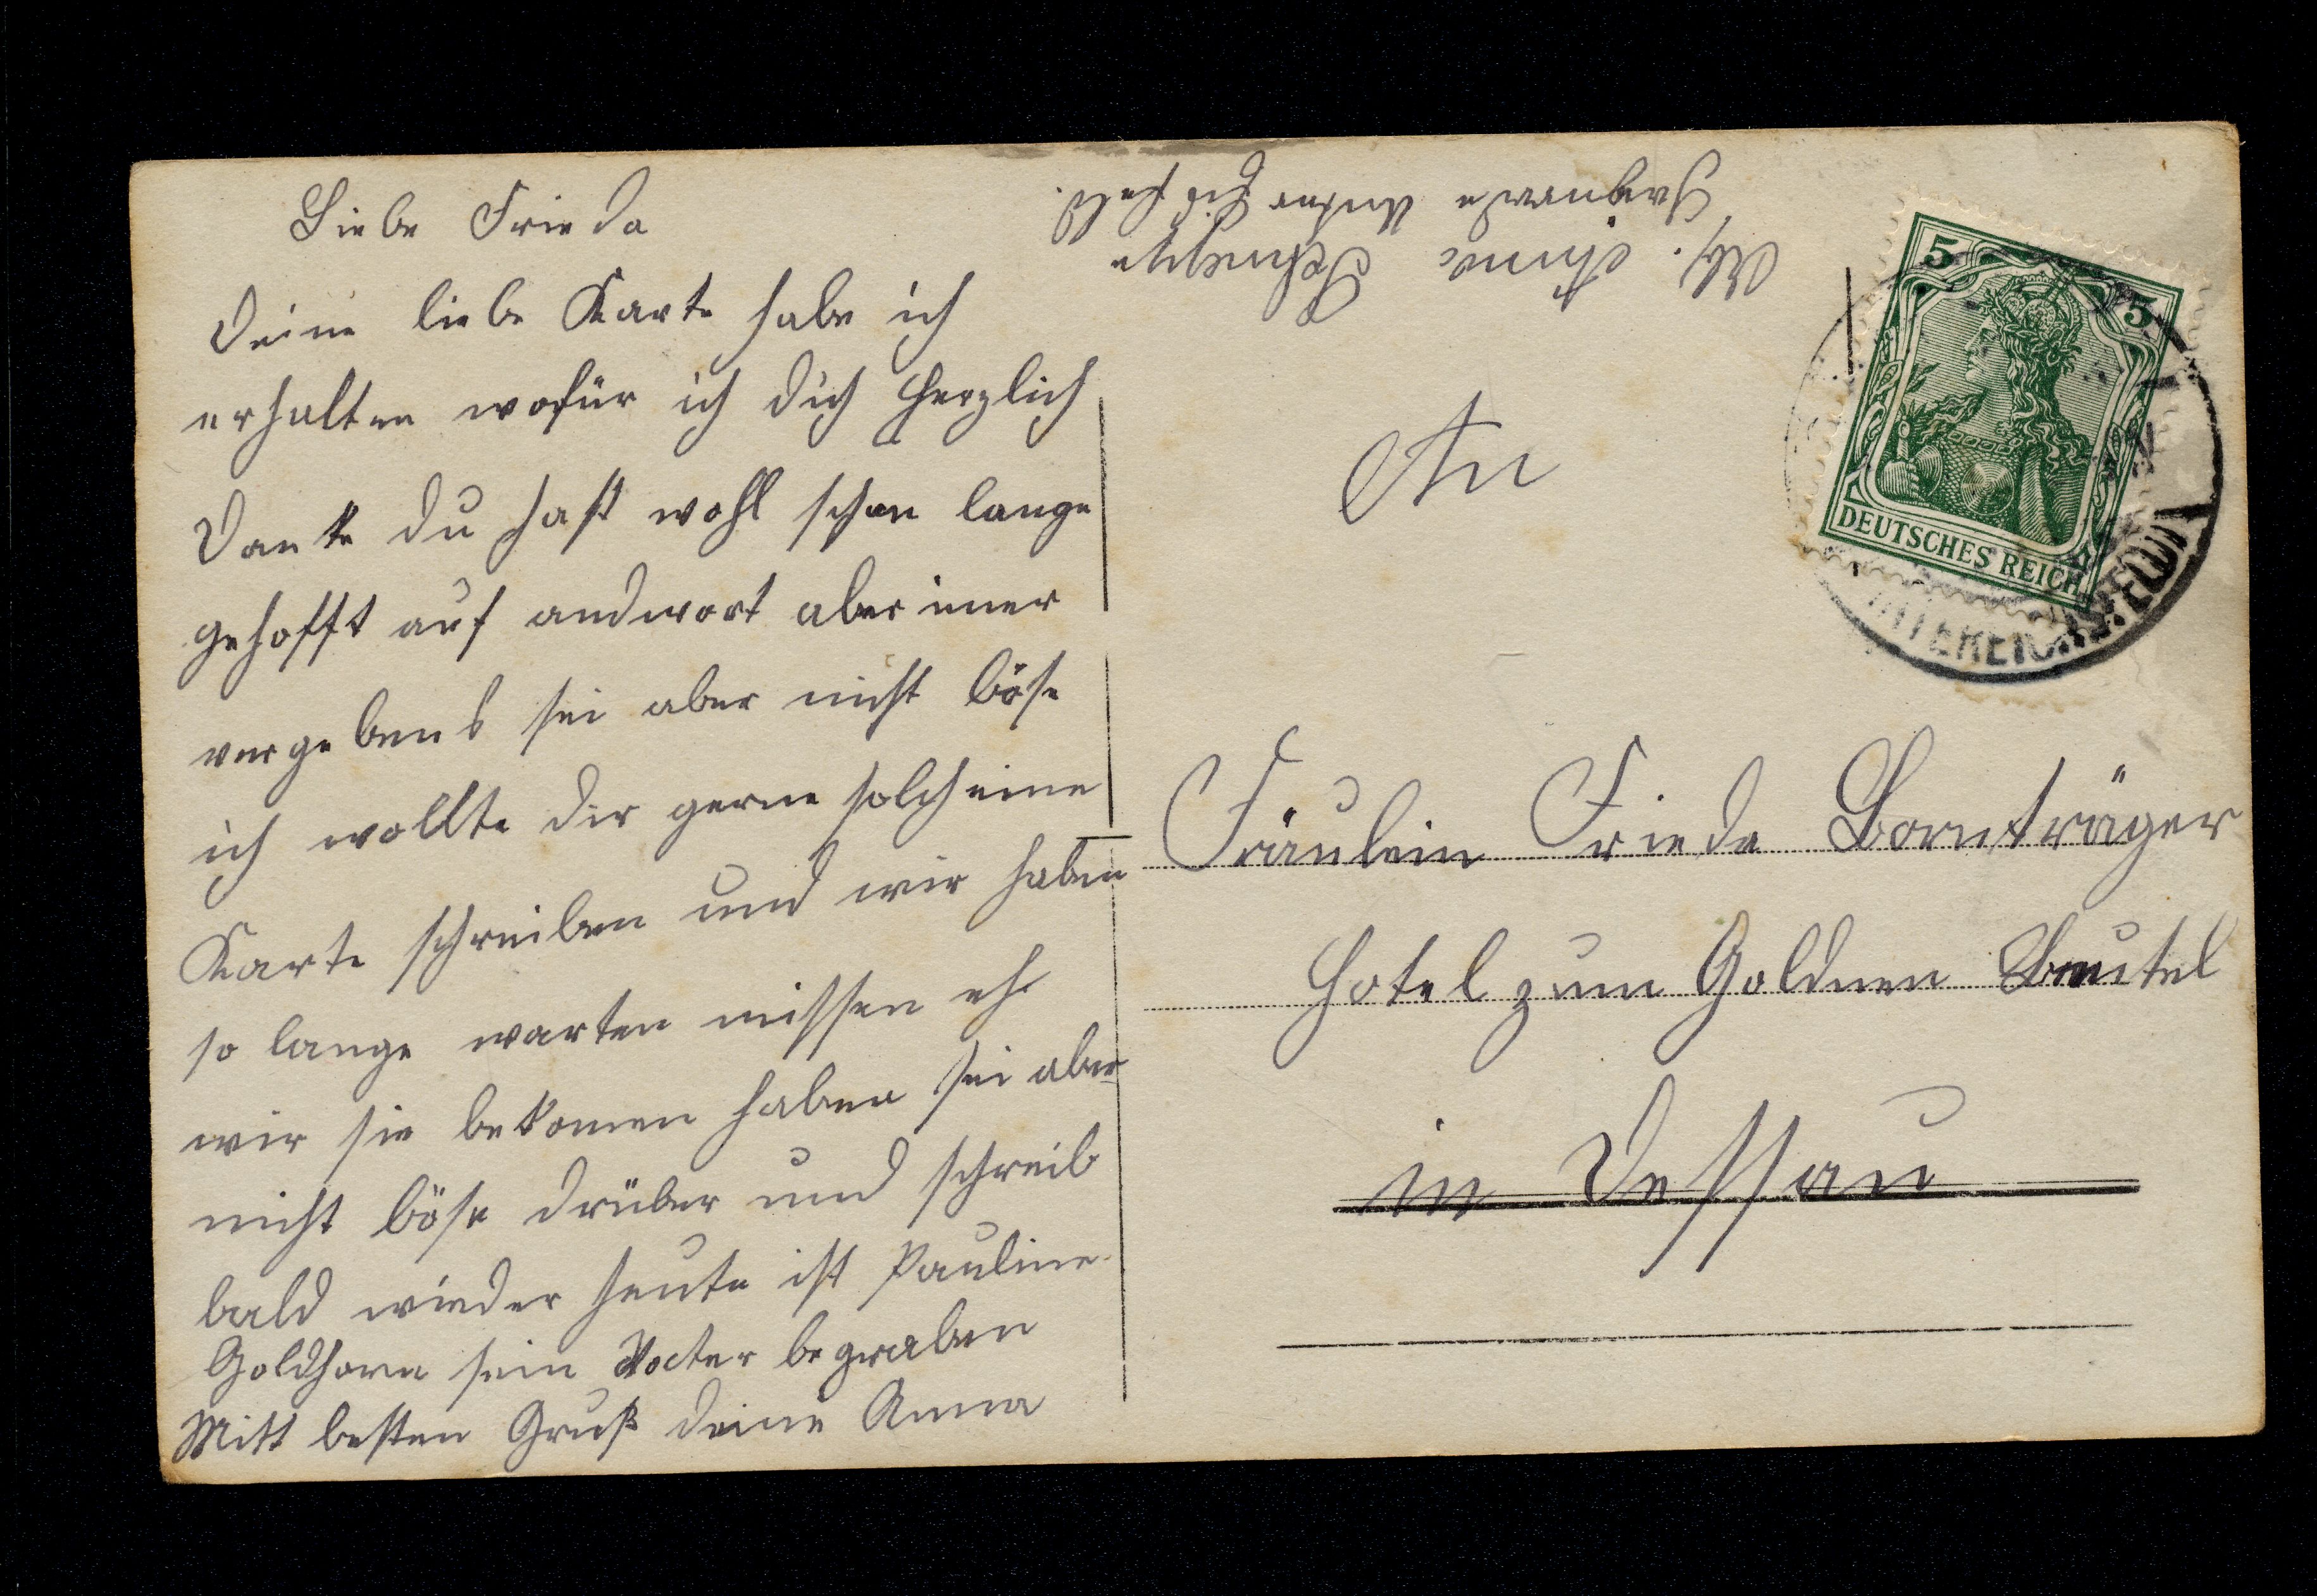 Liebe Frieda
Deine liebe Karte habe ich
erhalten wofür ich dich Herzlich
Danke du hast wohl schon lange
gehofft auf andwort aber imer
vergebens sei aber nicht böse
ich wollte dir gerne solch eine
Karte schreiben und wir haben
so lange warten missen eh
wir sie bekomen haben sei aber
nicht böse drüber und schreib
bald wieder heute ist Pauline
Goldhorn sein Vater begraben
Mitt besten Gruß deine Anna
Abs. Anna
An
5 5
DEUTSCHES REICH
Fräulein Frieda Bornträger
Hotel zum Goldnen Beutel
in Dessau